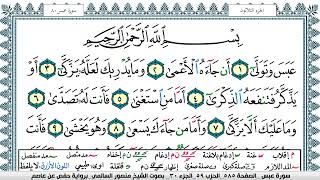 الجزء الثلاثون
سورة عبس ٨٠
بِسْمِ اللَّهِ الرَّحْمَٰنِ الرَّحِيمِ
عَبَسَ وَتَوَلَّىٰ ١ أَن جَاءَهُ الْأَعْمَىٰ ٢ وَمَا يُدْرِيكَ لَعَلَّهُ يَزَّكَّىٰ ٣ أَوْ
يَذَّكَّرُ فَتَنفَعَهُ الذِّكْرَىٰ ٤ أَمَّا مَنِ اسْتَغْنَىٰ ٥ فَأَنتَ لَهُ تَصَدَّىٰ ٦
وَمَا عَلَيْكَ أَلَّا يَزَّكَّىٰ ٧ وَأَمَّا مَن جَاءَكَ يَسْعَىٰ ٨ وَهُوَ يَخْشَىٰ ٩
سورة عبس الصفحة ٥٨٥ الجزء ٣٠ بصوت الشيخ منصور السالمي برواية حفص عن عاصم